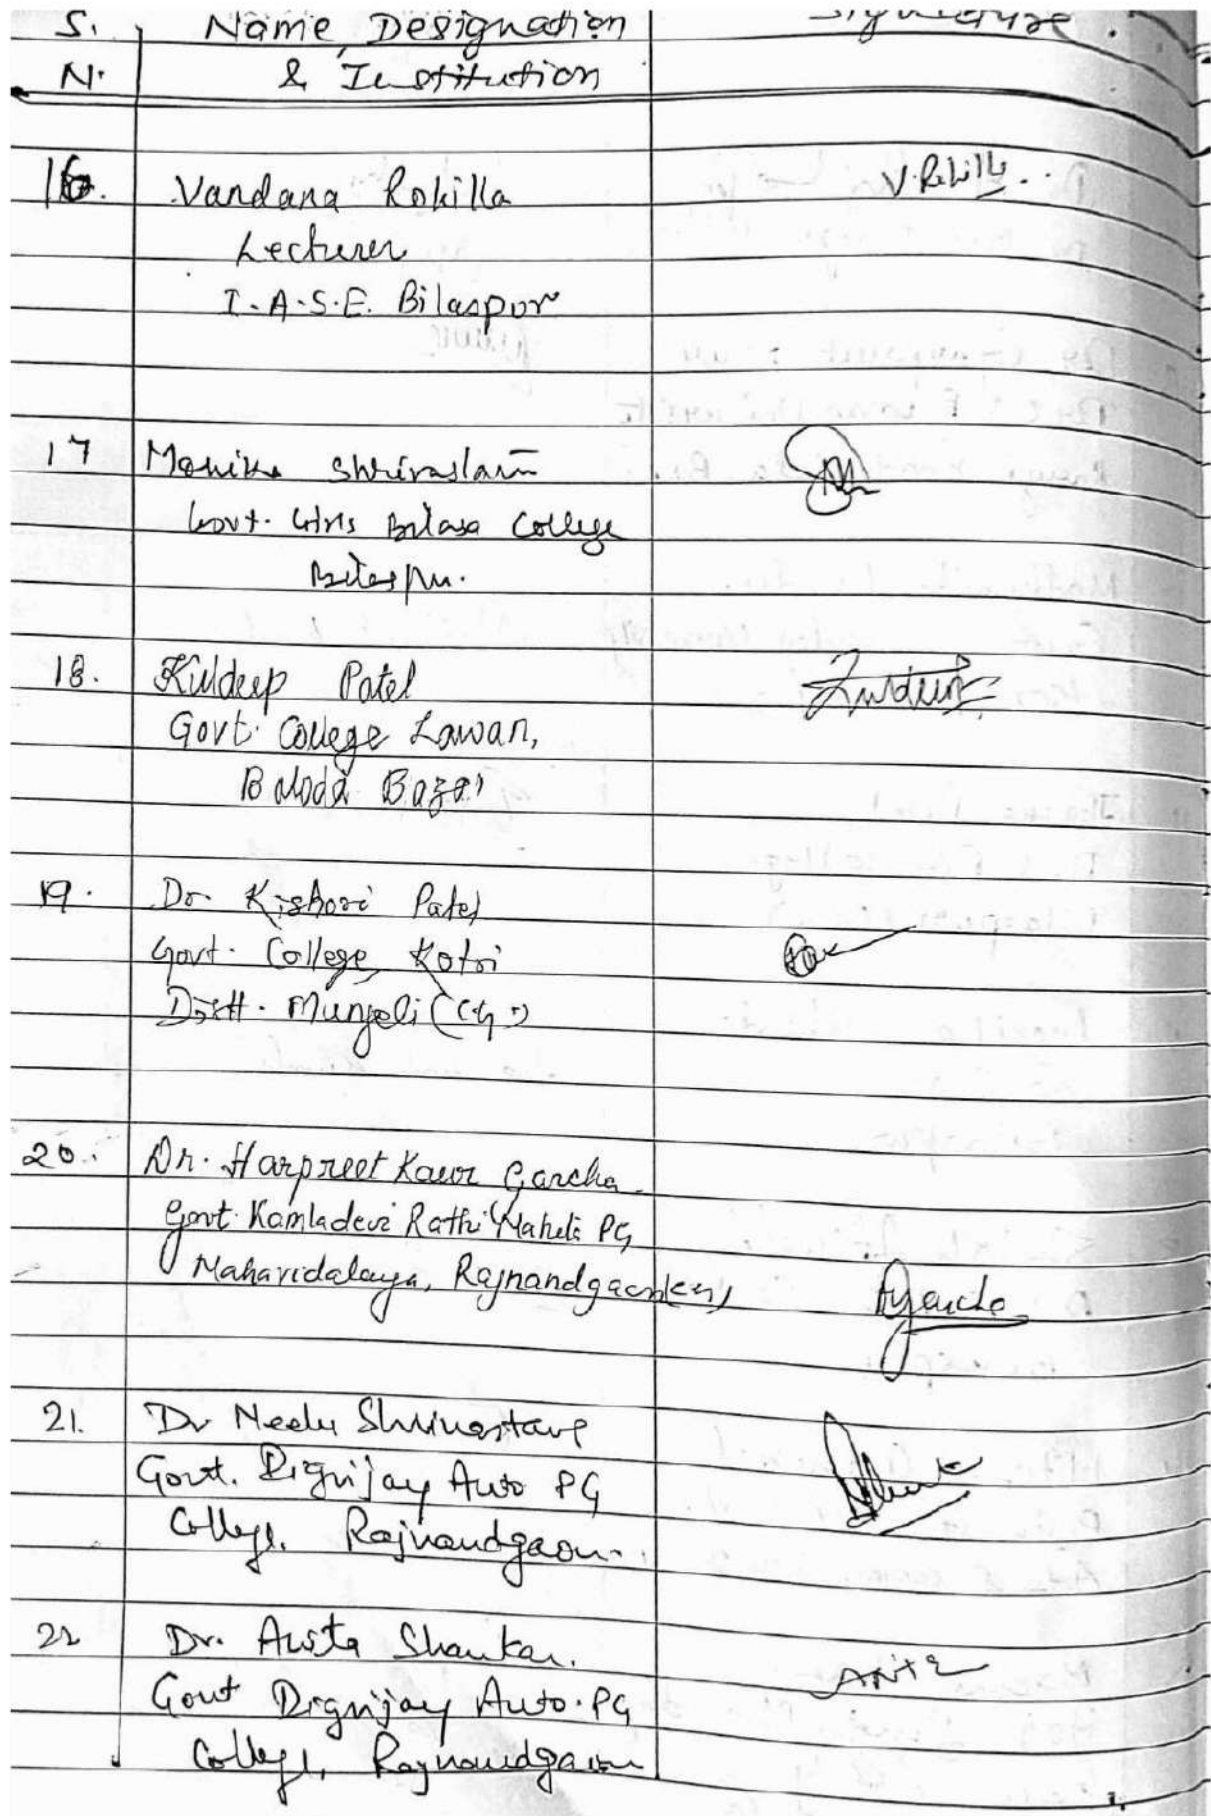 S. Name, Designation Signature.
N. & Institution
16. Vandana Rohilla V. Rohilla
Lecturer
I.A.S.E. Bilaspur
17 Monika Shrivastava
Govt. Girls Bilasa College
Bilaspur.
18. Kuldeep Patel Kuldeep
Govt. College Lawan,
Baloda Bazar
19. Dr. Kishori Patel
Govt. College, Kotri
Distt. Mungeli (C.G.)
20. Dr. Harpreet Kaur Garcha
Govt. Kamladevi Rathi Mahila PG
Mahavidalaya, Rajnandgaon (CG) Hgarcha
21. Dr Neelu Shrivastava
Govt. Digvijay Auto PG
College, Rajnandgaon.
22 Dr. Anita Shankar. Anita
Govt Digvijay Auto. PG
College, Rajnandgaon